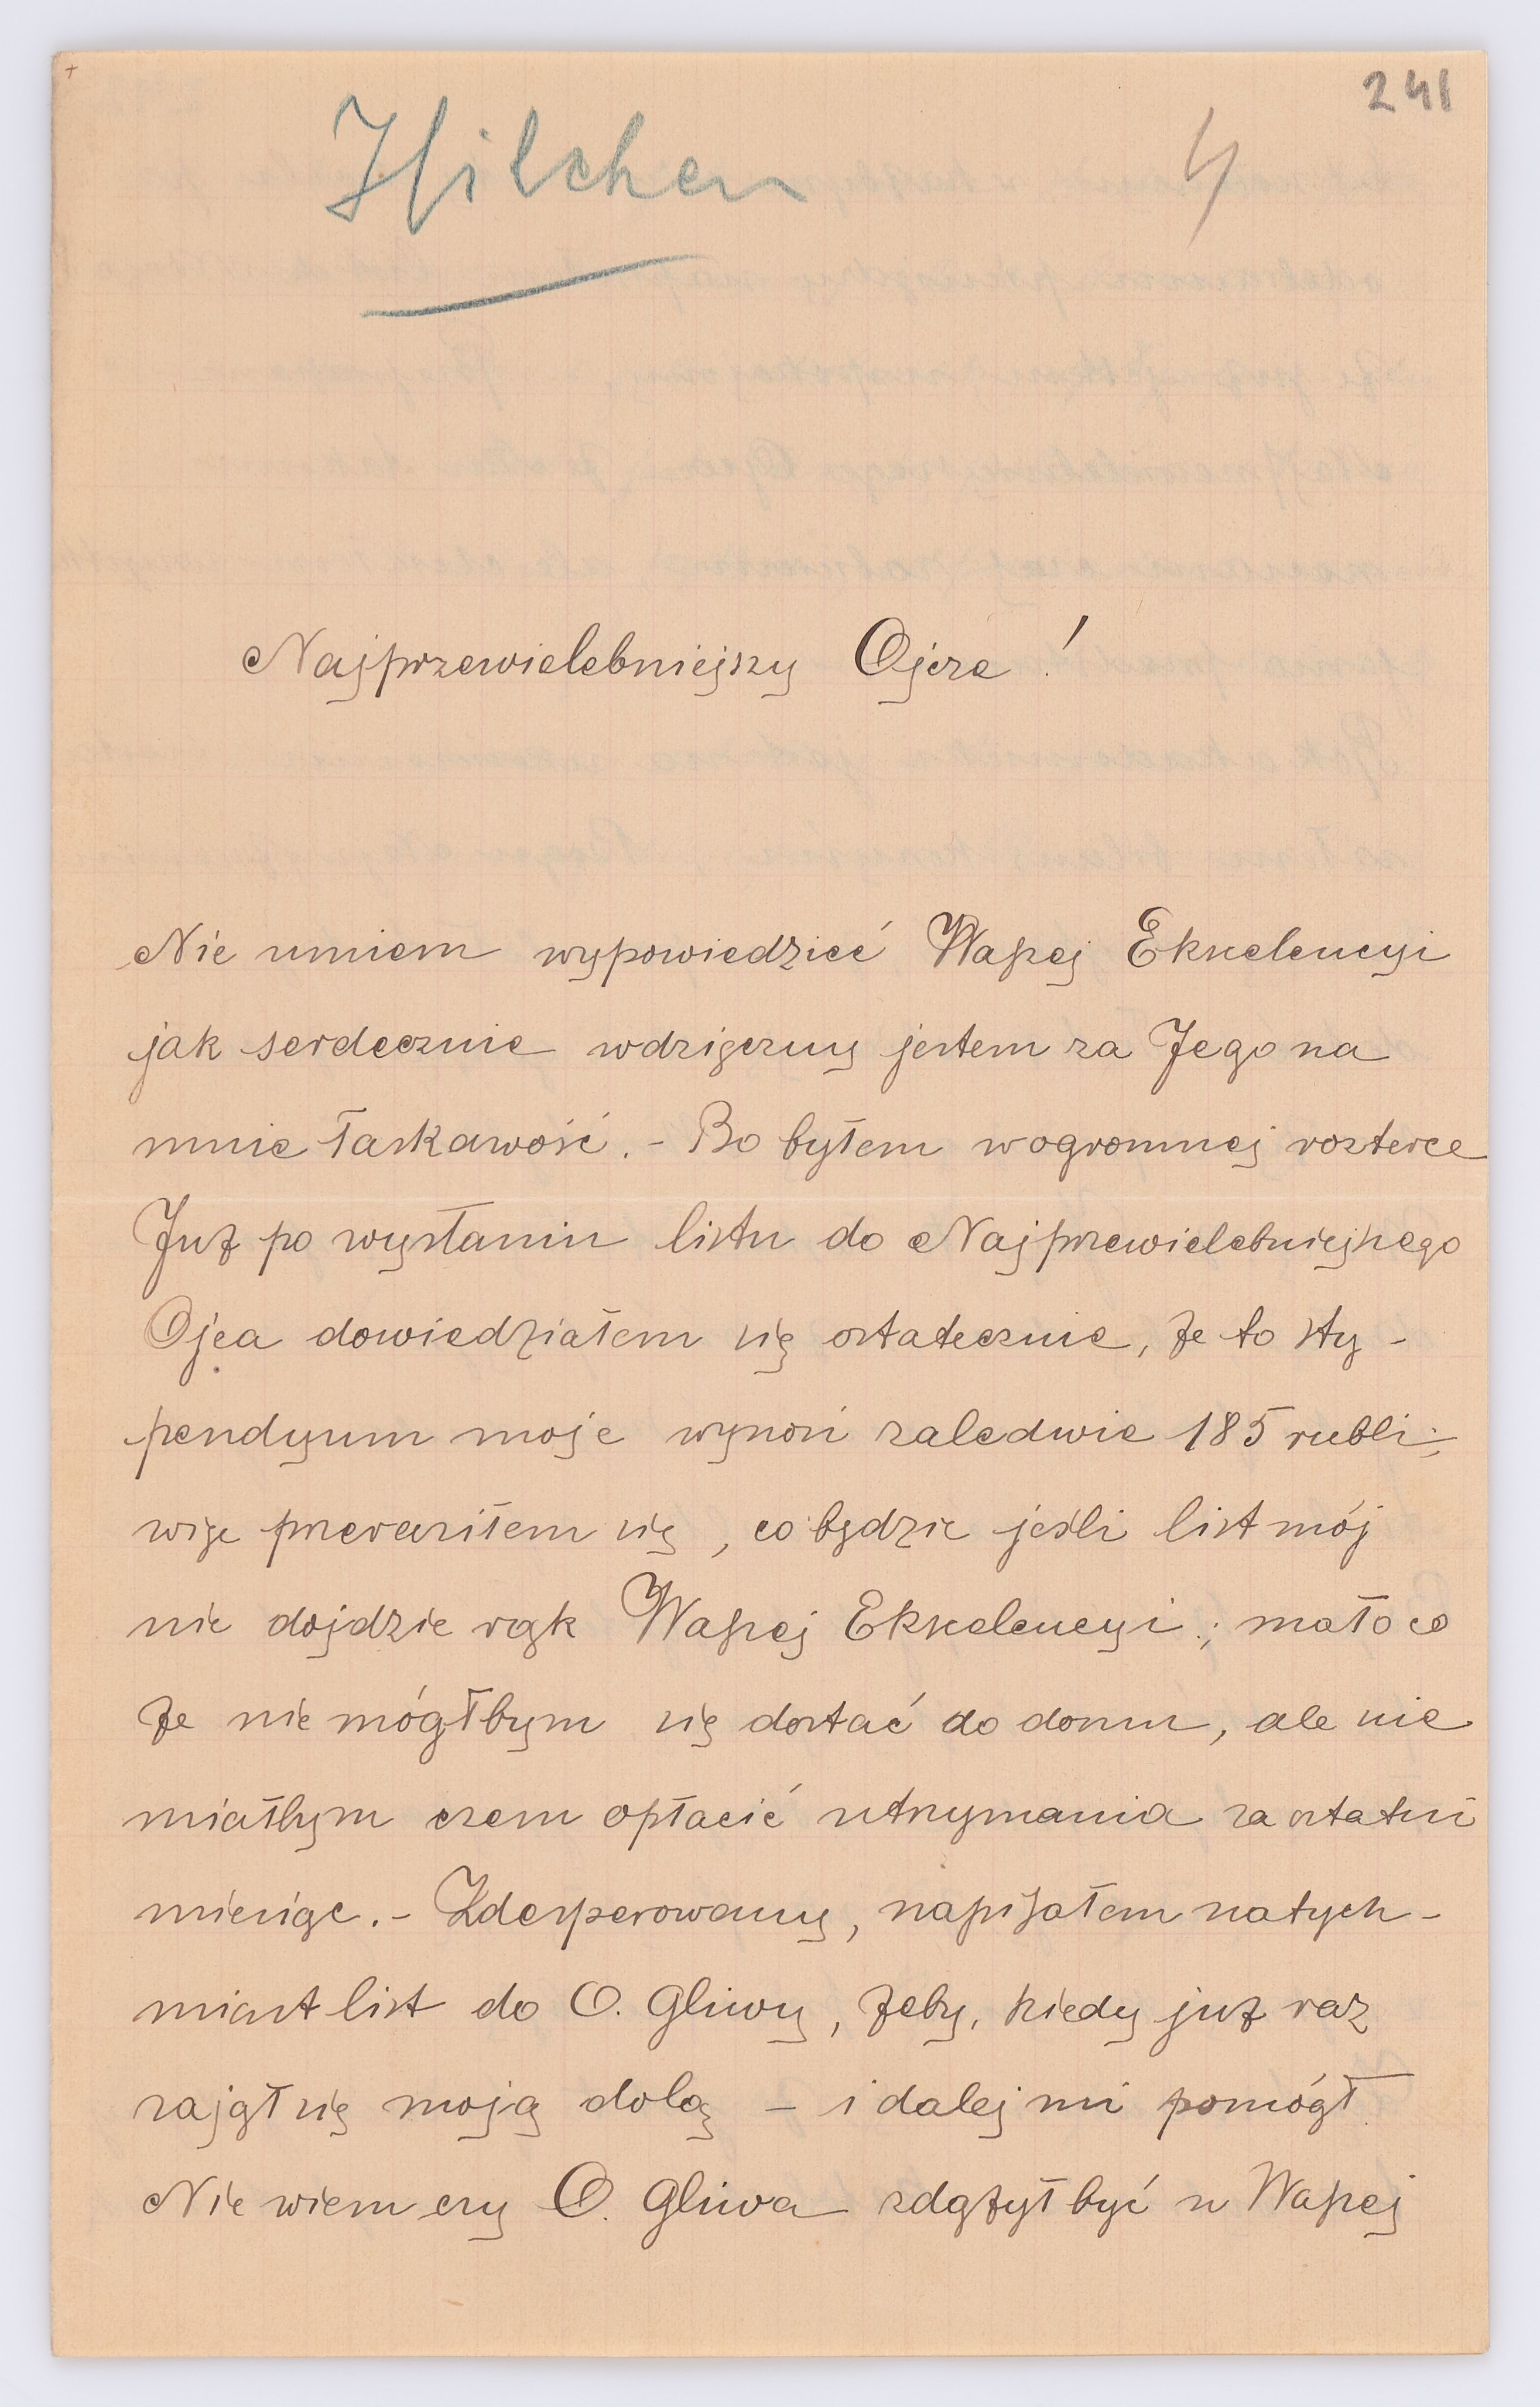 241
Hilchen
4
Najprzewielebniejszy Ojcze !
Nie umiem wypowiedzieć Waszej Ekscelencyi
jak serdecznie wdzięczny jestem za Jego na
mnie łaskawość. - Bo byłem w ogromnej rozterce
Już po wysłaniu listu do Najprzewielebniejszego
Ojca dowiedziałem się ostatecznie, że to sty-
pendyum moje wynosi zaledwie 185 rubli;
więc przeraziłem się, co będzie jeśli list mój
nie dojdzie rąk Waszej Ekscelencyi; mało co
że nie mógłbym się dostać do domu, ale nie
miałbym czem opłacić utrzymania za ostatni
miesiąc. - Zdesperowany, napisałem natych-
miast list do O. Gliwy, żeby, kiedy już raz
zajął się moją dolą - i dalej mi pomógł.
Nie wiem czy O. Gliwa zdążył być u Waszej